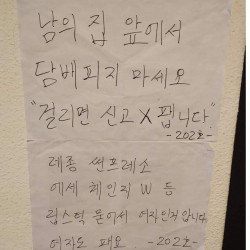 남의 집 앞에서
담배피지 마세요
"걸리면 신고 X 팹니다"
-202호-
레종 썬프레소
에쎄 체인지 W 등
립스틱 묻어서 여자인거 압니다
여자도 패요 -202호-